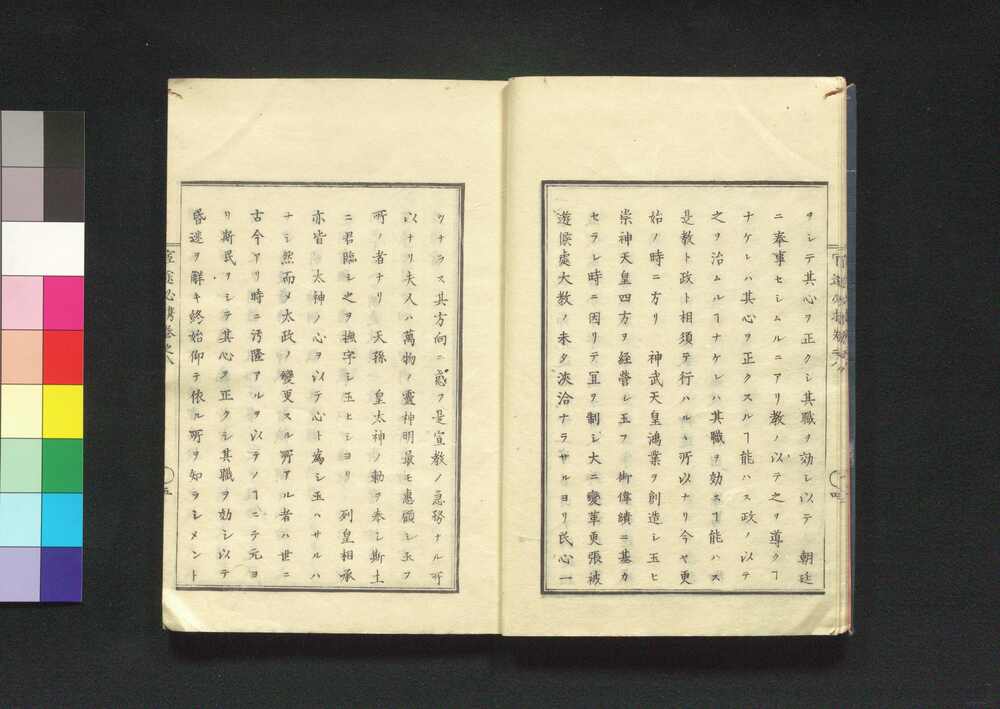 ヲシテ其心ヲ正クシ其職ヲ効シ以テ　朝廷
ニ奉事セシムルニアリ教ノ以テ之ヲ導クヿ
ナケレハ其心ヲ正クスルヿ能ハス政ノ以テ
之ヲ治ムルヿナケレハ其職ヲ効スヿ能ハス
是教ト政ト相須テ行ハルヽ所以ナリ今ヤ更
始ノ時ニ方リ　神武天皇鴻業ヲ創造シ玉ヒ
崇神天皇四方ヲ経營シ玉フ　御偉績ニ基カ
セラレ時ニ因リテ冝ヲ制シ大ニ變革更張被
遊候處大教ノ未タ浹洽ナラサルヨリ民心一
ツナラス其方向ニ惑フ是宣教ノ急務ナル所
以ナリ夫人ハ萬物ノ靈神明最モ惠顧シ玉フ
所ノ者ナリ　天孫　皇太神ノ勅ヲ奉シ斯土
ニ君臨シ之ヲ撫字シ玉ヒシヨリ　列皇相承
亦皆　太神ノ心ヲ以テ心ト爲シ玉ハサルハ
ナシ然而メ太政ノ變更スル所アル者ハ世ニ
古今アリ時ニ汚隆アルヲ以テノヿニテ元ヨ
リ斯民ヲシテ其心ヲ正クシ其職ヲ効シ以テ
昏迷ヲ解キ終始仰テ依ル所ヲ知ラシメント
官途必携巻之八
五